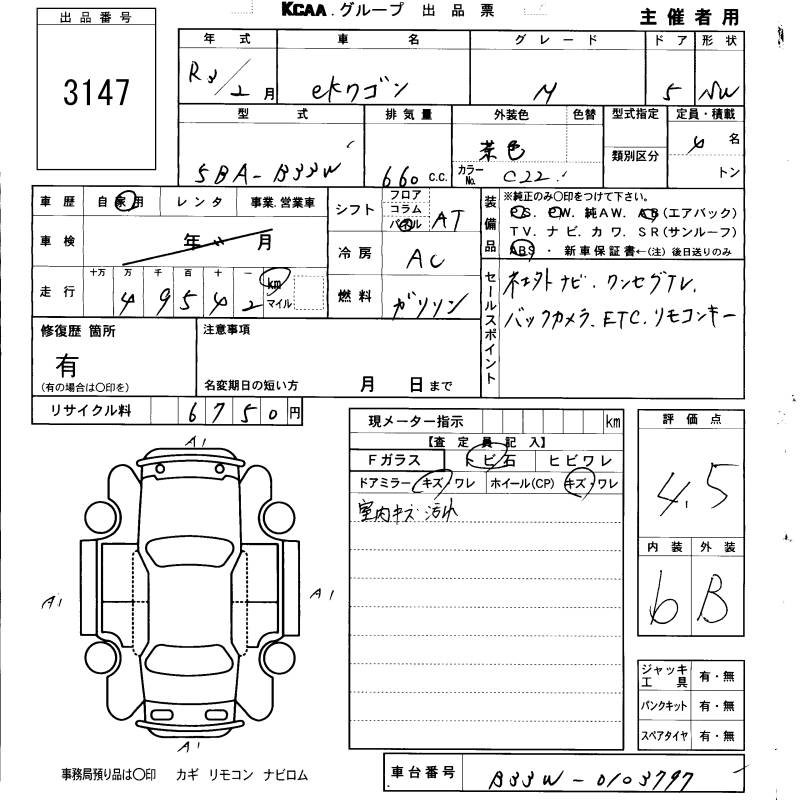 KCAA.グループ 出品票
主催者用
出品番号
3147
年式 車名 グレード ドア 形状
R3/2月 eKワゴン M 5 NW
型式 排気量 外装色 色替 型式指定 定員・積載
類別区分
5BA-B33W 660 C.C. 茶色 カラーNo. C22 4名
トン
車歴 自家用 レンタ 事業.営業車
シフト フロア コラム パネル AT
車検 年 月
冷房 AC
走行 十万 万 千 百 十 一 km マイル
4 9 5 4 2
燃料 ガソリン
装備品
※純正のみ○印をつけて下さい。
P.S. P.W. 純AW. AB(エアバック)
TV. ナビ. カワ. SR(サンルーフ)
ABS・新車保証書←(注)後日送りのみ
セールスポイント
ナビ.ワンセグTV.
バックカメラ.ETC.リモコンキー
修復歴 箇所
有
(有の場合は○印を)
注意事項
名変期日の短い方 月 日まで
リサイクル料 6750円
現メーター指示 km
【査定員記入】
Fガラス トビ石 ヒビワレ
ドアミラー キズ・ワレ ホイール(CP) キズ・ワレ
室内キズ 汚れ
評価点
4.5
内装 外装
6 B
A1
A1
A1
A1
ジャッキ工具 有・無
パンクキット 有・無
スペアタイヤ 有・無
事務局預り品は○印 カギ リモコン ナビロム
車台番号 B33W-0103797